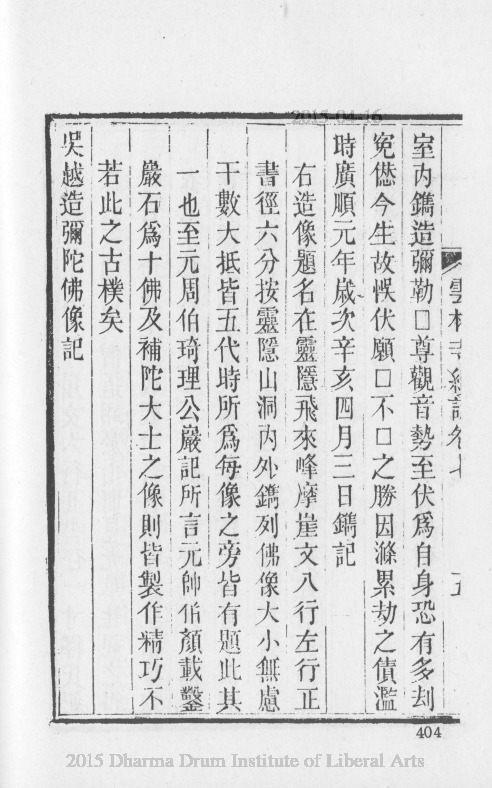 2015-04-16
室内鐫造彌勒□尊觀音勢至伏爲自身恐有多刦
寃僽今生故悞伏願□不□之勝因滌累劫之債濫
時廣順元年歲次辛亥四月三日鐫記
右造像題名在靈隱飛來峰摩崖文八行左行正
書徑六分按靈隱山洞内外鐫列佛像大小無慮
千數大抵皆五代時所爲每像之旁皆有題此其
一也至元周伯琦理公巖記所言元帥伯顏載鑿
巖石爲十佛及補陀大士之像則皆製作精巧不
若此之古樸矣
吳越造彌陀佛像記
404
2015 Dharma Drum Institute of Liberal Arts